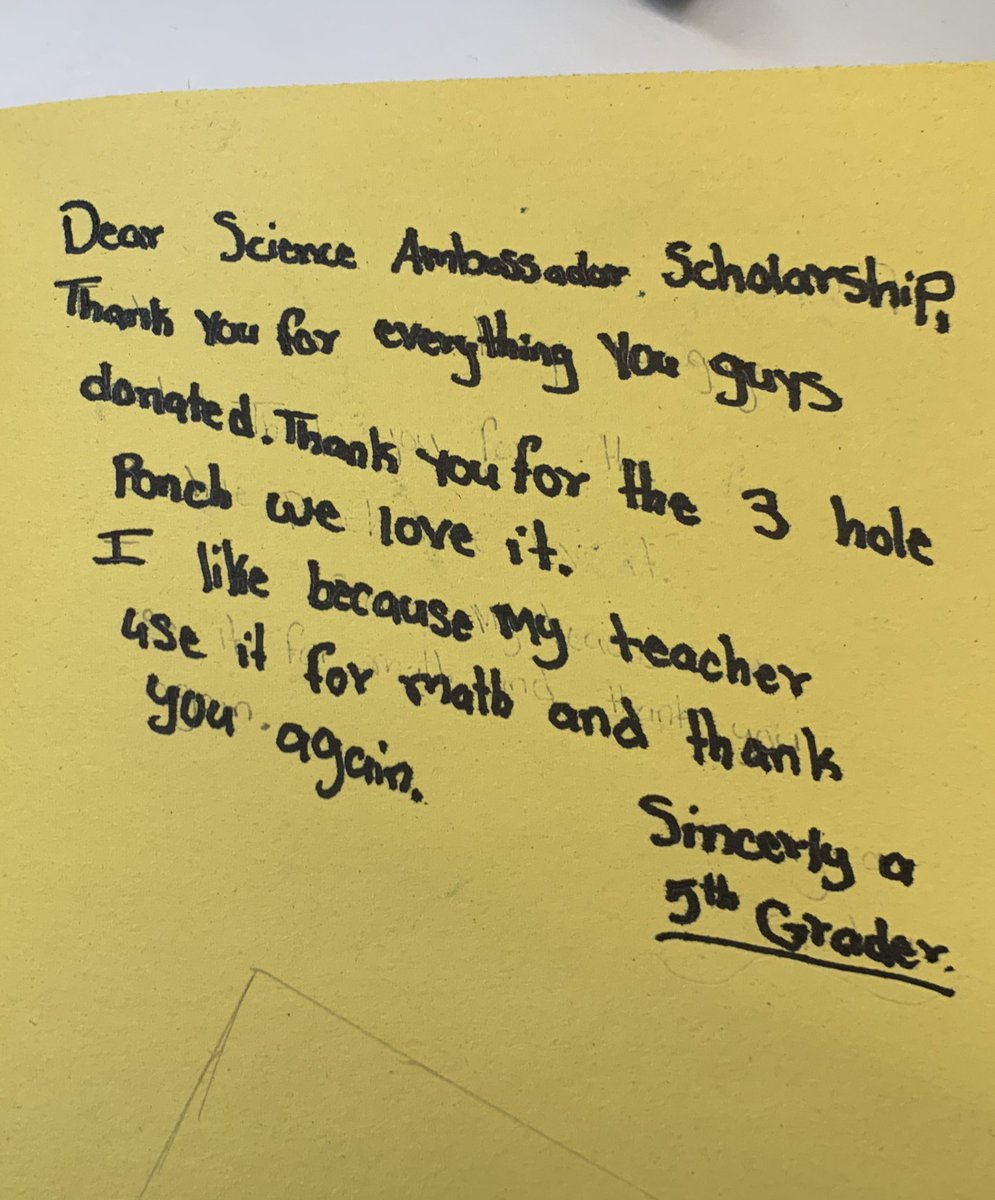 Dear Science Ambassador Scholarship,
Thank you for everything you guys
donated. Thank you for the 3 hole
Ponch we love it.
I like because my teacher
use it for math and thank
you again.
Sincerly a
5th Grader.